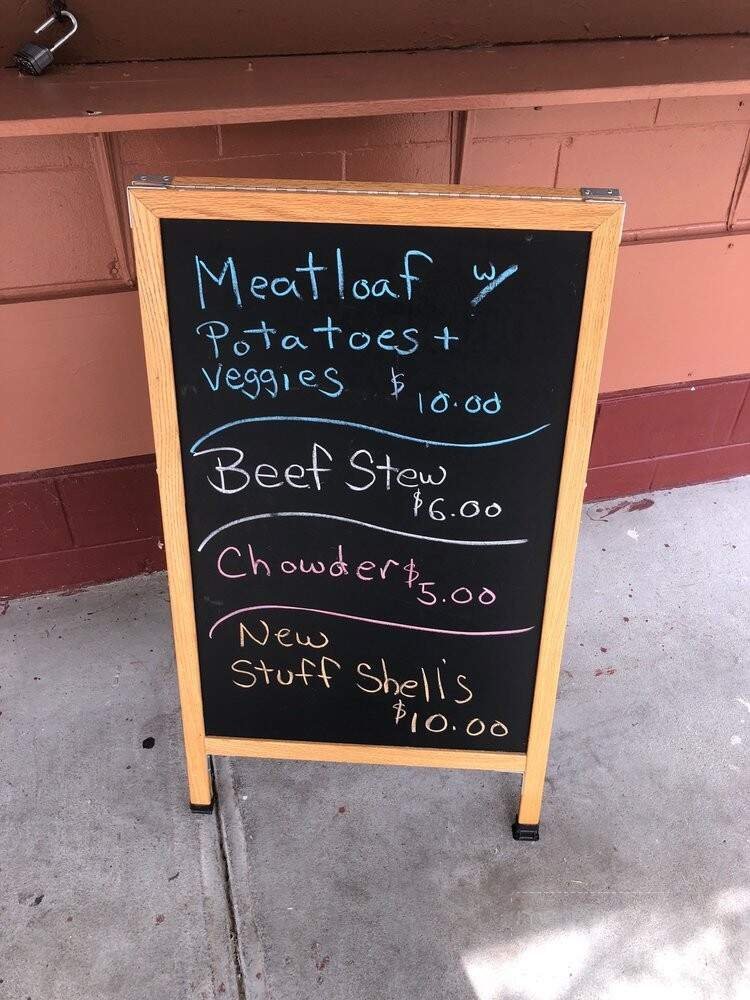 Meatloaf w/
Potatoes +
Veggies $10.00
Beef Stew
$6.00
Chowder $5.00
New
Stuff Shell's
$10.00